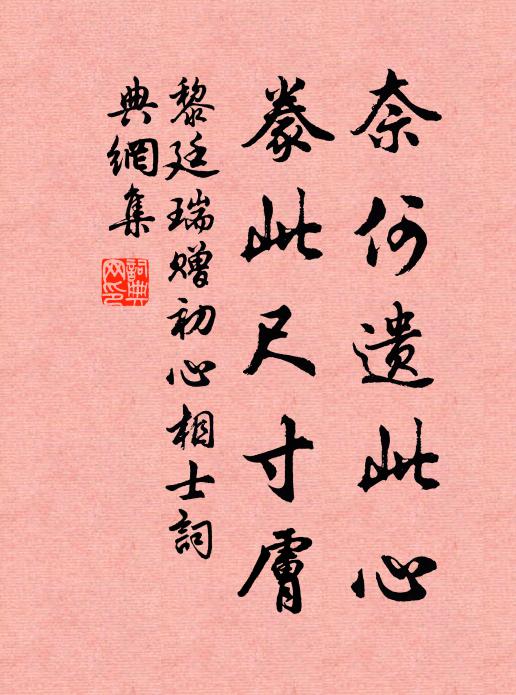 奈何遗此心
豢此尺寸膚
黎廷瑞赠初心相士詞
典網集
詞典
网印